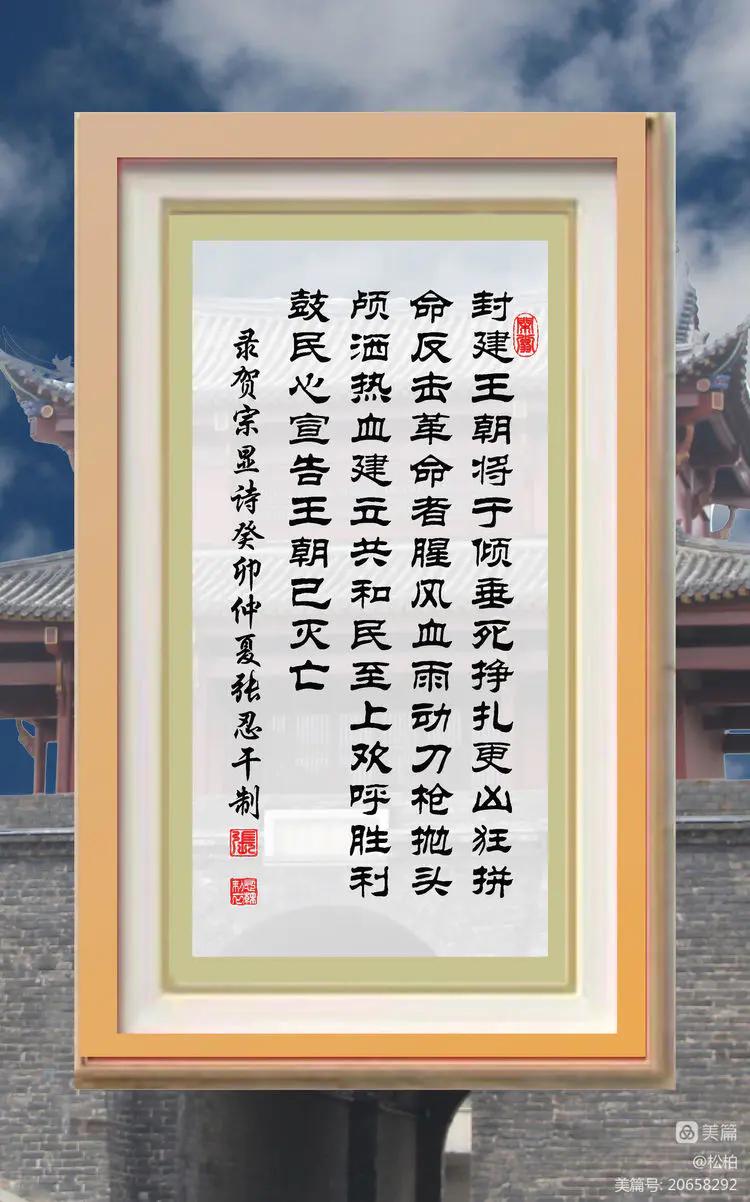 封建王朝将于倾垂死挣扎更凶狂拼
命反击革命者腥风血雨动刀枪抛头
颅洒热血建立共和民至上欢呼胜利
鼓民心宣告王朝已灭亡
录贺宗显诗癸卯仲夏张忍干制
美篇
@松柏
美篇号: 20658292